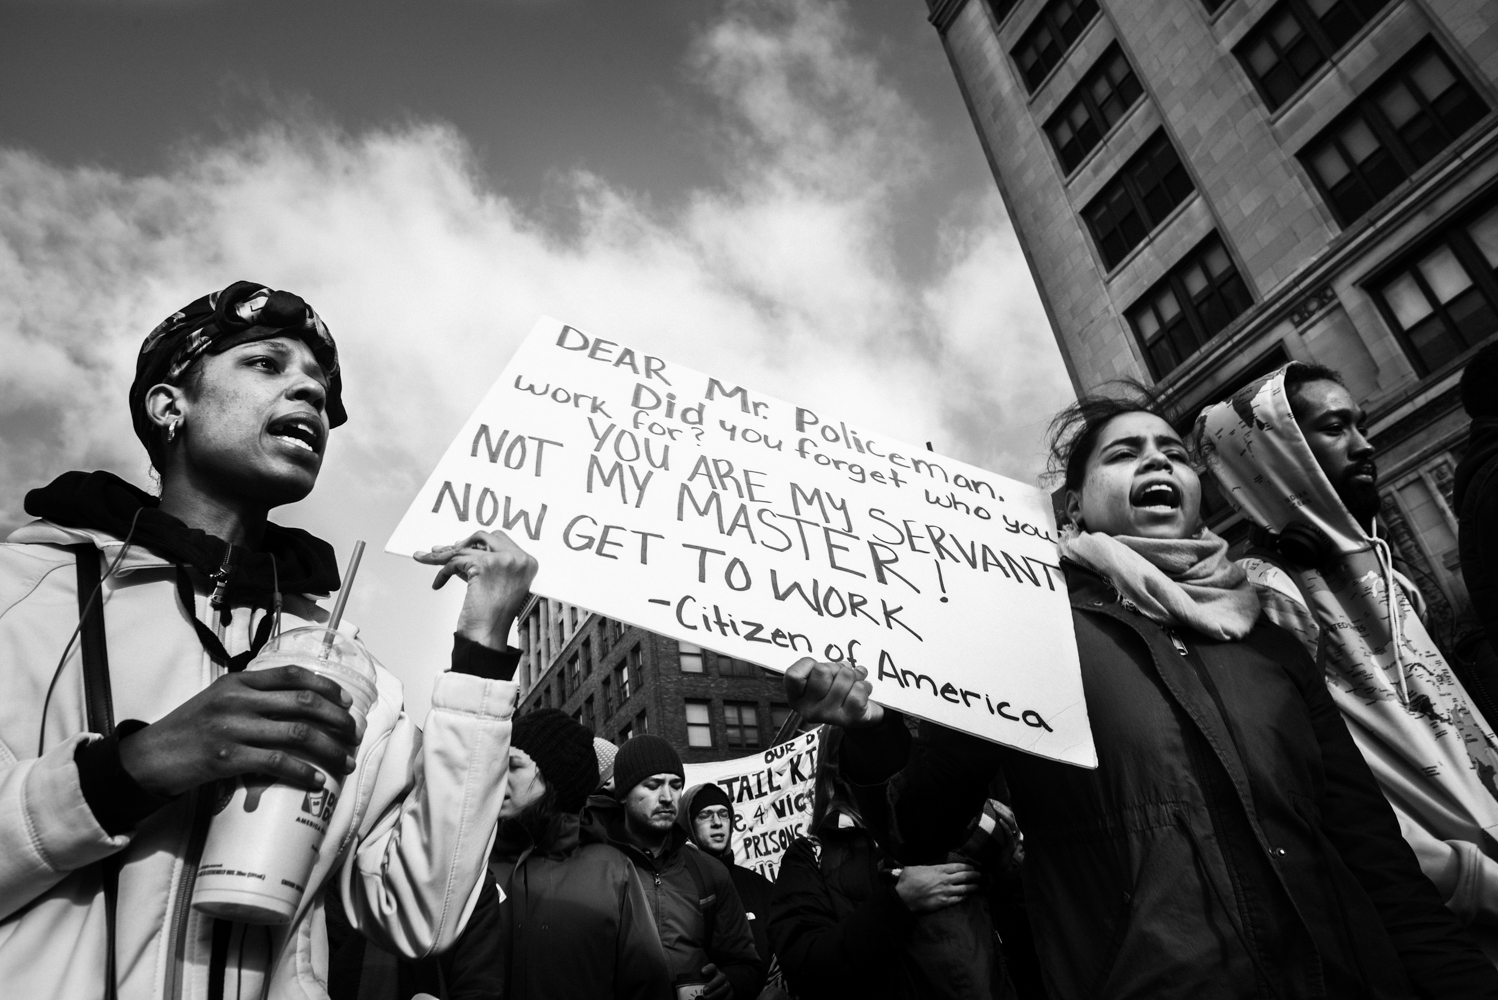 DEAR Mr. Policeman.
Did you forget who you
work for?
YOU ARE MY SERVANT
NOT MY MASTER!
NOW GET TO WORK
-Citizen of America
OUR
TAIL-KI
e. 4 VIC
PRISONS
AMERICA